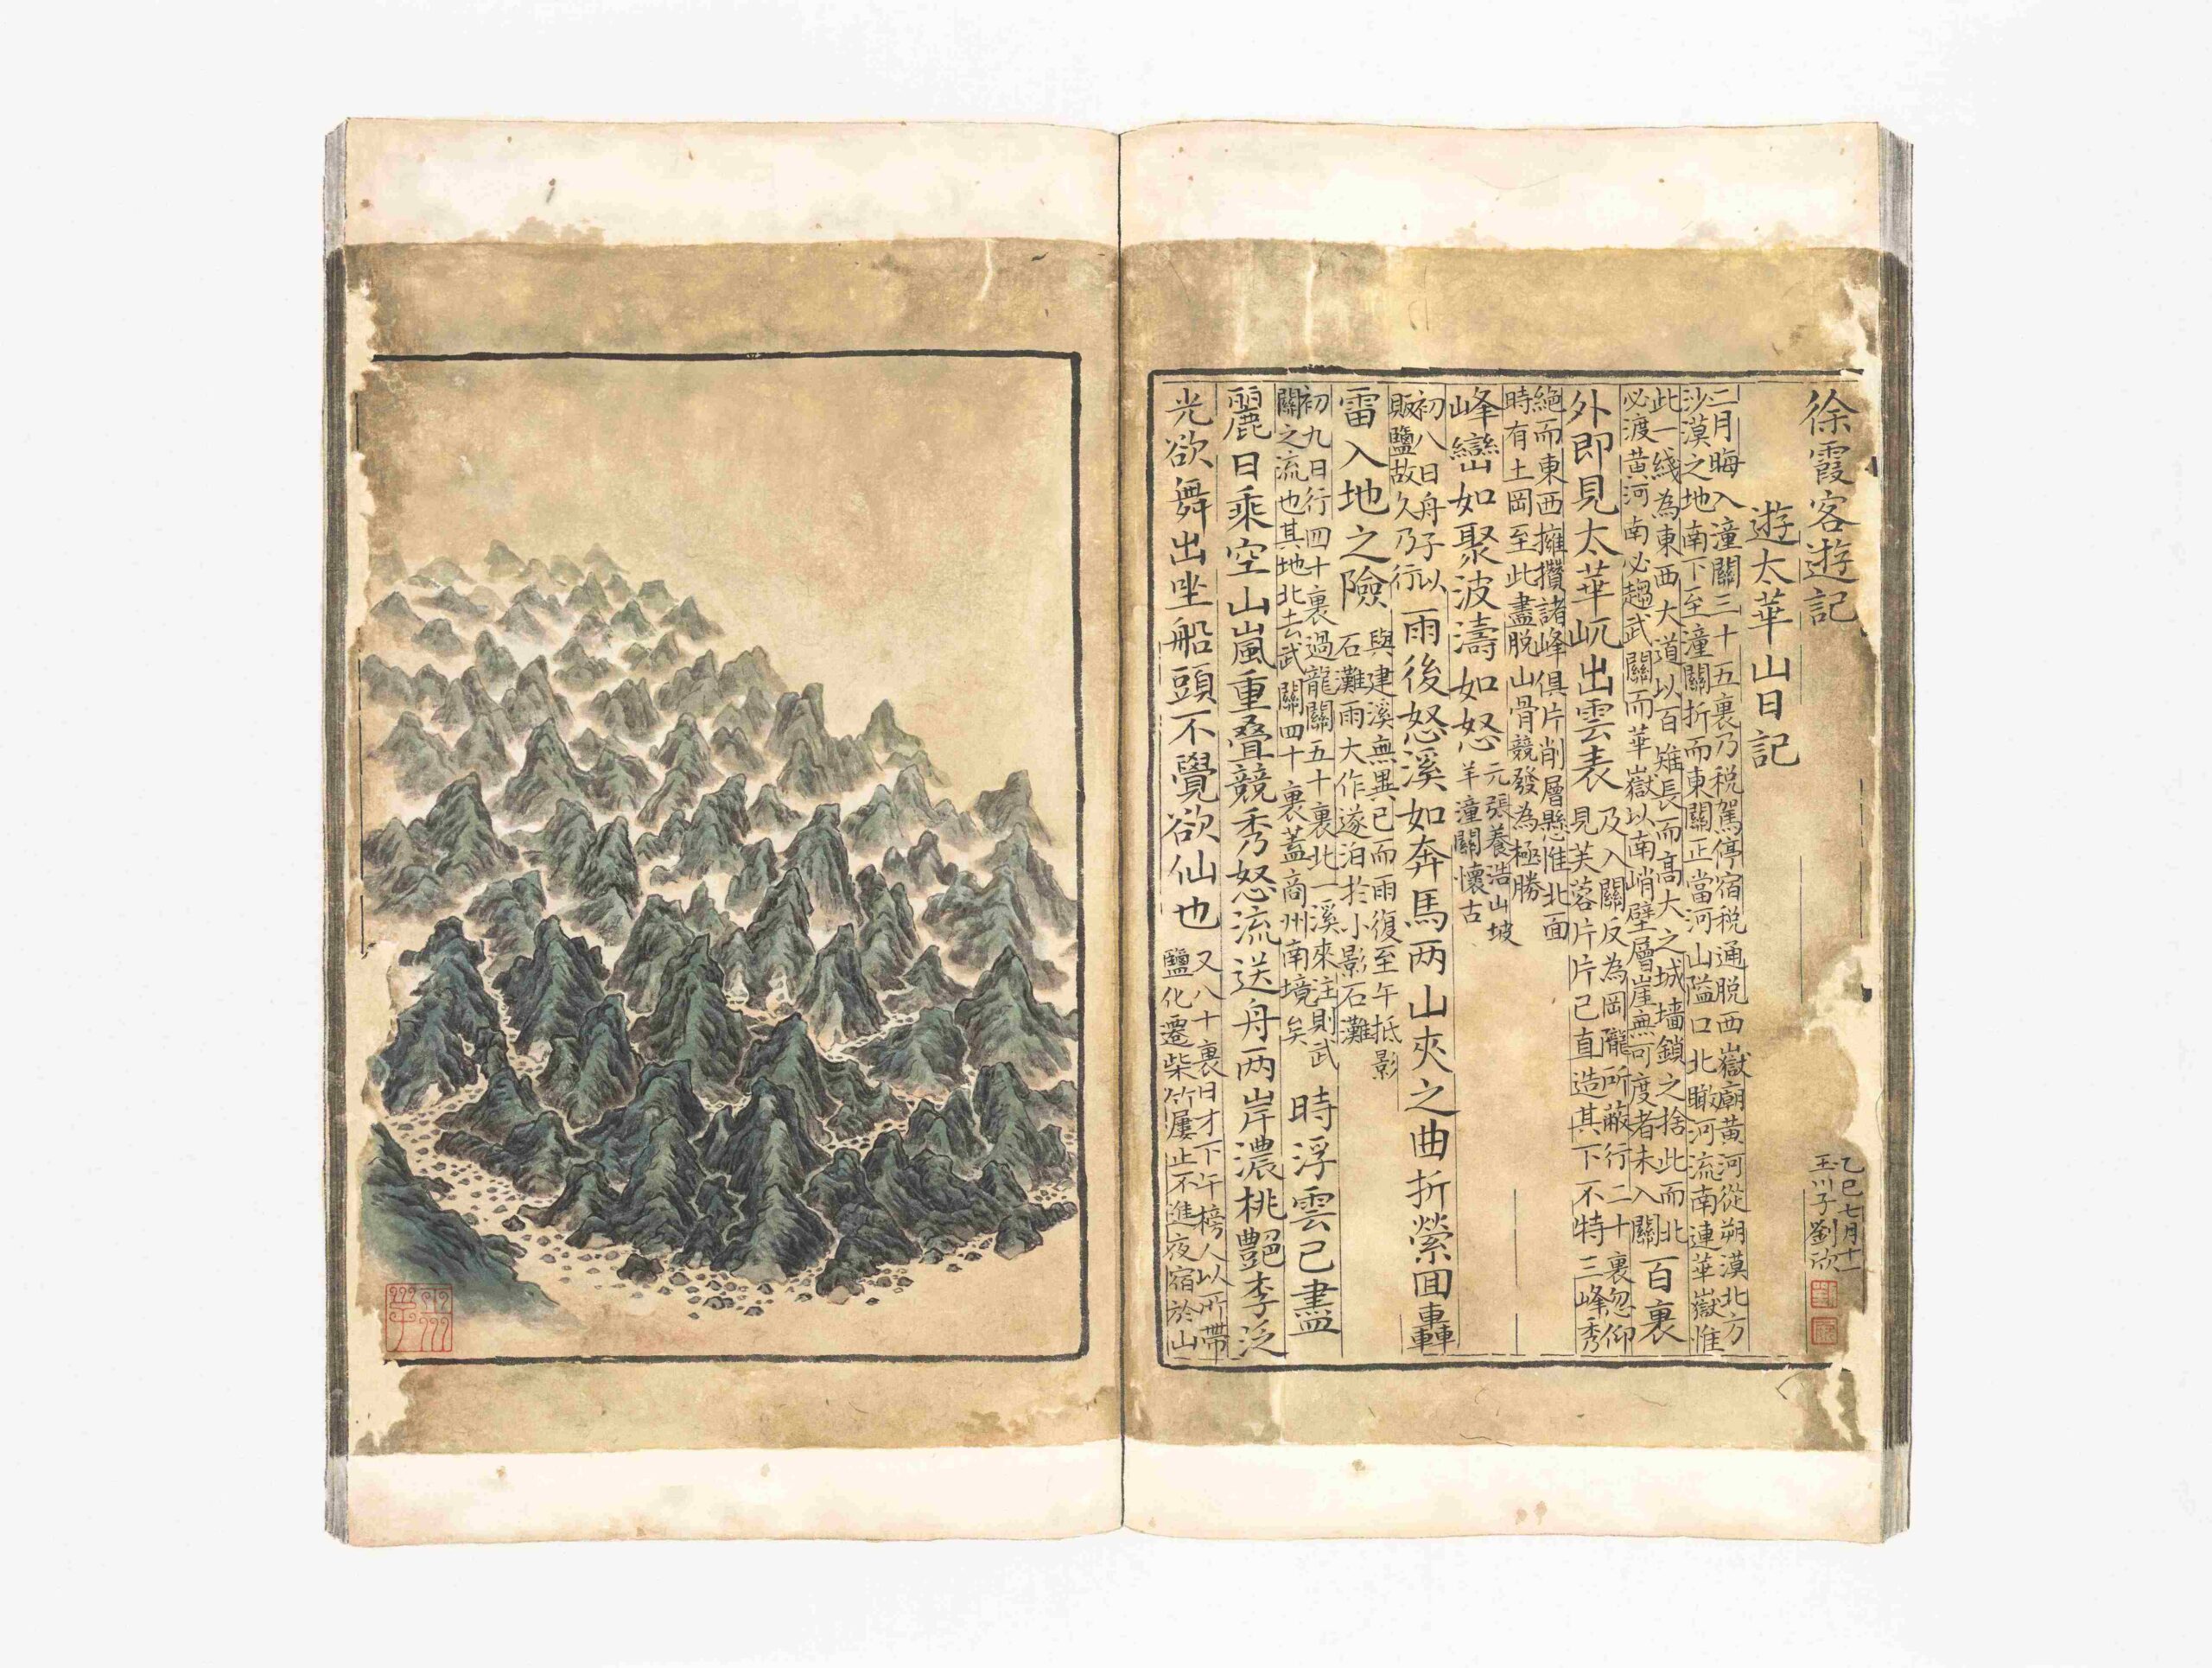 徐霞客遊記
乙巳七月十一
玉川子劉欣
遊太華山日記
二月晦入潼關三十五裏乃稅駕停宿稅通脫西嶽廟黃河從朔漠北方
沙漠之地南下至潼關折而東關正當河山隘口北瞰河流南連華嶽惟
此一綫為東西大道以百雉長而高大之城墻鎖之捨此而北
必渡黃河南必趨武關而華嶽以南峭壁層崖無可度者未入關
百裏
外即見太華屼出雲表
及入關反為岡隴所蔽行二十裏忽仰
見芙蓉片片已直造其下不特三峰秀
絕而東西擁攢諸峰俱片削層懸惟北面
時有土岡至此盡脫山骨競發為極勝
峰巒如聚波濤如怒
元張養浩山坡
羊潼關懷古
初八日舟子以
販鹽故久乃行
雨後怒溪如奔馬两山夾之曲折縈回轟
雷入地之險
與建溪無異已而雨復至午抵影
石灘雨大作遂泊於小影石灘
初九日行四十裏過龍關五十裏北一溪來注則武
關之流也其地北去武關四十裏蓋商州南境矣
時浮雲已盡
麗日乘空山嵐重疊競秀怒流送舟两岸濃桃艷李泛
光欲舞出坐船頭不覺欲仙也
又八十裏日才下午榜人以所帶
鹽化遷柴竹屢止不進夜宿於山